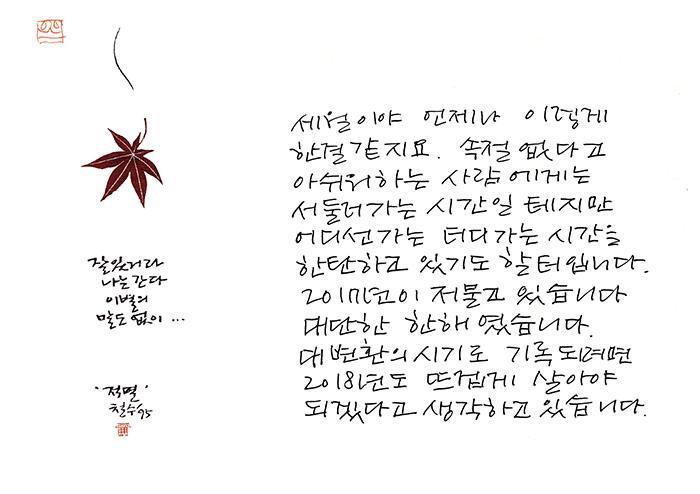 잘 있거라
나는 간다
이별의
말도 없이 ...
'적멸'
철수 95
세월이야 언제나 이렇게
한결같지요. 속절 없다고
아쉬워하는 사람에게는
서둘러가는 시간일 테지만
어디선가는 더디가는 시간을
한탄하고 있기도 할 터입니다.
2017년이 저물고 있습니다
대단한 한해 였습니다.
대변환의 시기로 기록되려면
2018년도 뜨겁게 살아야
되겠다고 생각하고 있습니다.